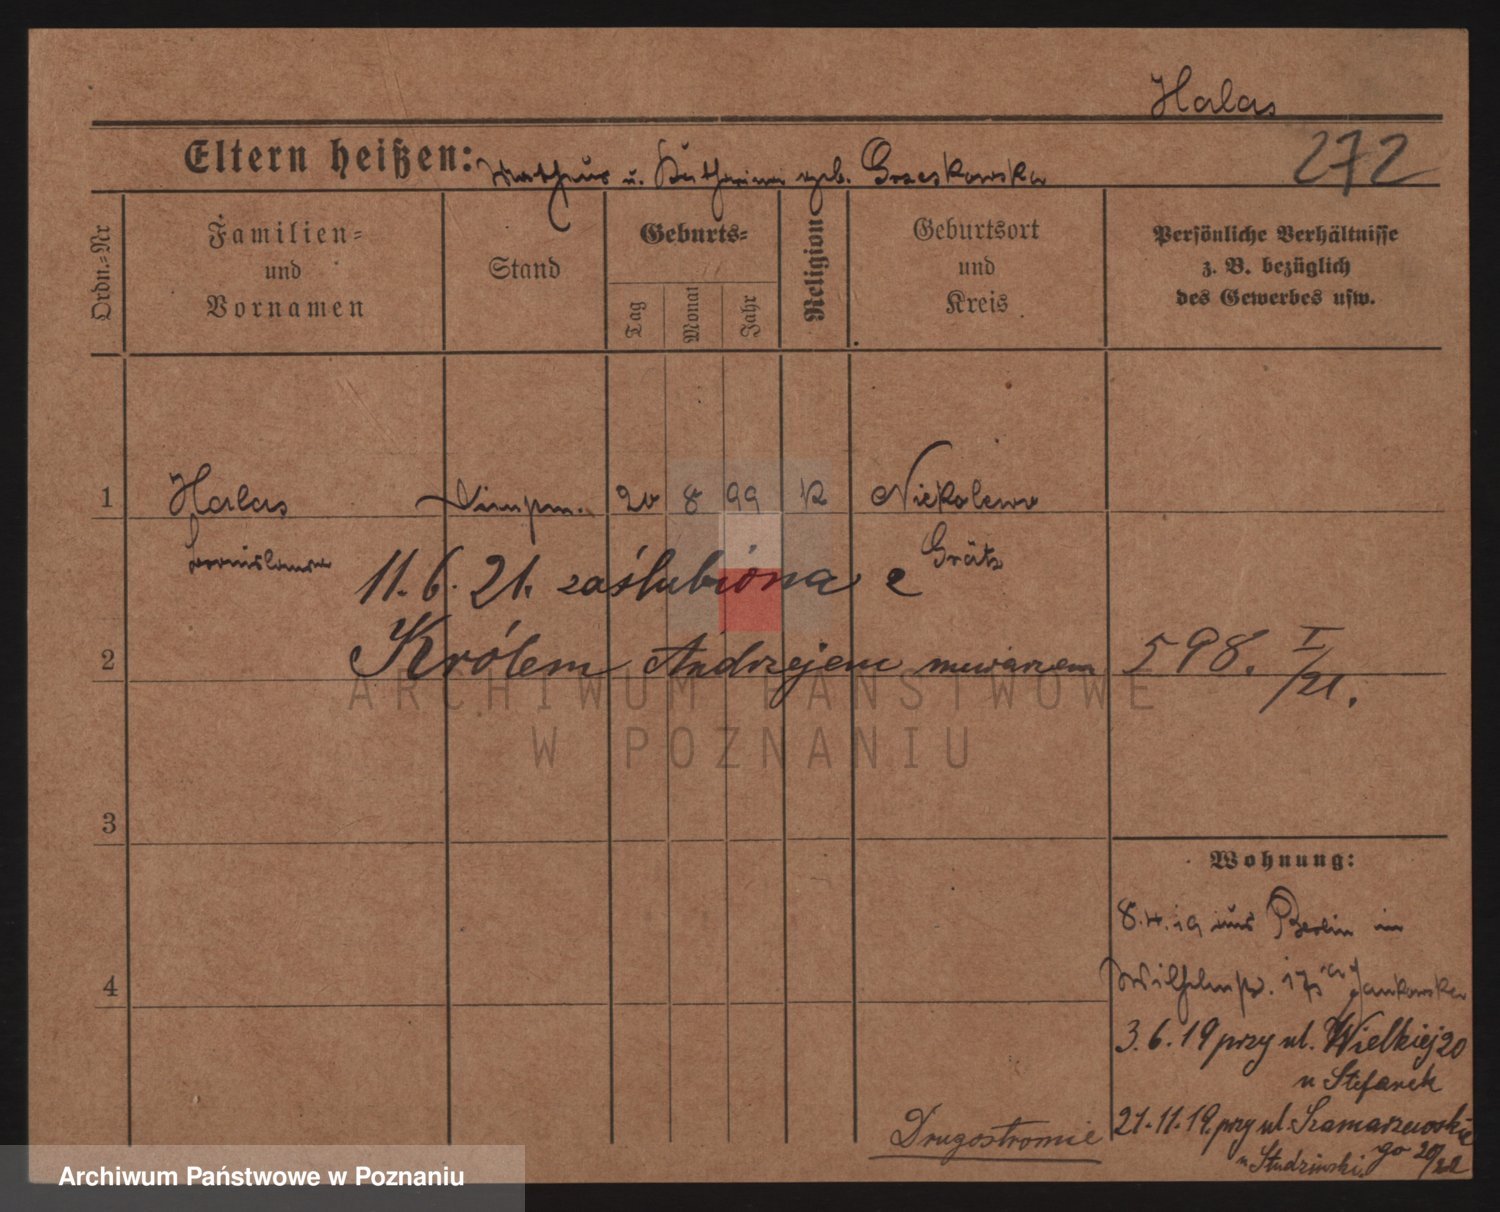 Halas
272
Eltern heißen: u. geb. Grzeskowska
Ordn.=Nr
Familien=
und
Vornamen
Stand
Geburts=
Tag
Monat
Jahr
Religion
Geburtsort
und
Kreis
Persönliche Verhältnisse
z. B. bezüglich
des Gewerbes usw.
1
Halas
8 99 K
Grätz
11. 6. 21. zaślubiona z
2
Królem Andrzejem murarzem 598. I/21.
ARCHIWUM PAŃSTWOWE
W POZNANIU
3
Wohnung:
8.4.19 aus Berlin in
4
Wilhelmstr. Jankowska
3.6.19 przy ul. Wielkiej 20
u Stefanek
21.11.19. przy ul. Szamarzewskie
go 20/22
u Studzinski
Drugostronnie
Archiwum Państwowe w Poznaniu